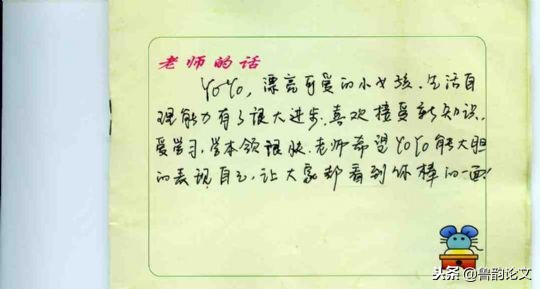 老师的话
YoYo，漂亮可爱的小女孩．生活自
理能力有了很大进步．喜欢接受新知识，
爱学习，学本领很快．老师希望YoYo能大胆
的表现自己，让大家都看到你棒的一面！
头条@鲁韵论文